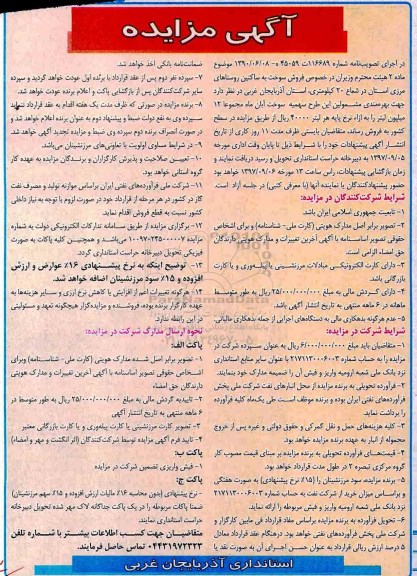 آگهی مزایده
در اجرای تصویب‌نامه شماره ۱۱۶۶۸۹/ت ۴۵۰۵۹ه - ۱۳۹۰/۰۶/۰۸ موضوع
ماده ۲ هیئت محترم وزیران در خصوص فروش سوخت به ساکنین روستاهای
مرزی استان در شعاع ۲۰ کیلومتری، استان آذربایجان غربی در نظر دارد
جهت بهره‌مندی مشمولین این طرح سهمیه سوخت آبان ماه مجموعا ۱۲
میلیون لیتر را به ازاء نرخ پایه هر لیتر ۴۰۰۰۰ ریال از طریق مزایده در سطح
کشور به فروش رساند، متقاضیان بایستی ظرف مدت ۱۱ روز کاری از تاریخ
انتشار آگهی پیشنهادات خود را با شرایط ذیل تا پایان وقت اداری مورخه
۱۳۹۷/۰۹/۰۵ به دبیرخانه حراست استانداری تحویل و رسید دریافت نمایند و
زمان بازگشایی پیشنهادات، راس ساعت ۱۳ مورخه ۱۳۹۷/۰۹/۰۶ خواهد بود
حضور پیشنهاددهندگان یا نماینده آنها (با معرفی کتبی) در جلسه آزاد است.
شرایط شرکت‌کنندگان در مزایده:
۱- تابعیت جمهوری اسلامی ایران باشد.
۲- تصویر برابر اصل مدارک هویتی (کارت ملی - شناسنامه) و برای اشخاص
حقوقی تصویر اساسنامه با آگهی آخرین تغییرات و مدارک هویتی دارندگان
حق امضاء الزامی است.
۳- دارای کارت الکترونیکی مبادلات مرزنشینی پیله‌وری و یا کارت
بازرگانی باشد.
۴- دارای گردش مالی به مبلغ ۲۵/۰۰۰/۰۰۰/۰۰۰ ریال به طور متوسط
ماهانه در ۶ ماهه منتهی به تاریخ انتشار آگهی باشد.
۵- عدم هرگونه بدهکاری مالی به دستگاه‌های اجرایی از جمله بدهکاری مالیاتی.
شرایط شرکت در مزایده:
۱- متقاضیان باید مبلغ ۶/۰۰۰/۰۰۰/۰۰۰ ریال به عنوان سپرده شرکت در
مزایده را به حساب شماره ۲۱۷۱۱۳۰۰۰۶۰۰۲ با عنوان سایر منابع استانداری
نزد بانک ملی شعبه ارومیه واریز و فیش آن را ضمیمه مدارک خود بنمایند.
۲- فرآورده تحویلی به برنده مزایده از محل انبارهای نفت شرکت ملی پخش
فرآورده‌های نفتی ایران بوده و برنده موظف است طی یک‌ماه کلیه فرآورده
را برداشت نماید.
۳- کلیه هزینه‌های حمل و نقل گمرکی و حقوق دولتی و غیره پس از خروج
محموله از انبار به عهده برنده مزایده خواهد بود.
۴- قیمت‌های فرآورده تحویلی به برنده مزایده بر مبنای قیمت مصوب کار
گروه مرکزی تبصره ۲ در طول مدت قرارداد خواهد بود.
۵- برنده مزایده، سود مرزنشینان را (۱۵٪ نرخ پیشنهادی) به صورت هفتگی
و براساس میزان خرید از شرکت نفت به حساب شماره ۲۱۷۱۱۳۰۰۰۶۰۰۳
نزد بانک ملی شعبه ارومیه واریز و فیش مربوطه را ارائه نماید.
۶- تحویل فرآورده به برنده مزایده براساس مفاد قرارداد فی مابین کارگزار و
شرکت ملی پخش فرآورده‌های نفتی خواهد بود. درهنگام عقد قرارداد معادل
۵ درصد ارزش ریالی قرارداد به عنوان حسن اجرای آن به صورت نقد یا
ضمانت‌نامه بانکی اخذ خواهد شد.
۷- سپرده نفر دوم پس از عقد قرارداد با برنده اول عودت خواهد گردید و سپرده
سایر شرکت‌کنندگان پس از بازگشایی پاکت و اعلام برنده عودت خواهد شد.
۸- برنده مزایده در صورتی که ظرف مدت یک هفته اقدام به عقد قرارداد ننماید
سپرده وی به نفع دولت ضبط و پیشنهاد دوم به عنوان برنده اعلام خواهد شد و
در صورت انصراف برنده دوم سپرده وی ضبط و مزایده تجدید آگهی خواهد شد.
۹- در شرایط مساوی اولویت با تعاونی‌های مرزنشینان می‌باشد.
۱۰- تعیین صلاحیت و پذیرش کارگزاران و برندگان مزایده به عهده کار
گروه استانی خواهد بود.
۱۱- شرکت ملی فرآورده‌های نفتی ایران براساس موازنه تولید و مصرف نفت
گاز در کشور در هر مرحله از قرارداد خود در صورت لزوم با توجه به نیاز داخلی
کشور نسبت به قطع فروش اقدام نماید.
۱۲- برگزاری مزایده از طریق سامانه تدارکات الکترونیکی دولت به شماره
مزایده می‌باشد و همچنین کلیه پاکات به صورت
فیزیکی تحویل دبیرخانه حراست استانداری گردد.
۱۳- توضیح اینکه به نرخ پیشنهادی ۱۶٪ عوارض و ارزش
افزوده و ۱۵٪ سود مرزنشینان اضافه خواهد شد.
۱۴- هرگونه تغییرات اعم از افزایش یا کاهش نرخ ارزی و سایر هزینه‌ها به
عهده کارگزار برنده بوده، فروشنده و مزایده‌گزار هیچگونه تعهد و مسئولیتی
در این رابطه ندارد.
نحوه ارسال مدارک شرکت در مزایده:
پاکت الف:
۱- تصویر برابر اصل شده مدارک هویتی (کارت ملی - شناسنامه) وبرای
اشخاص حقوقی تصویر اساسنامه با آگهی آخرین تغییرات و مدارک هویتی
دارندگان حق امضاء
۲- تائیدیه گردش مالی به مبلغ ۲۵/۰۰۰/۰۰۰/۰۰۰ ریال به طور متوسط در
۶ ماهه منتهی به تاریخ انتشار آگهی
۳- تصویر کارت مرزنشینی یا کارت پیله‌وری و یا کارت بازرگانی معتبر
۴- تایید فرم آگهی مزایده توسط شرکت‌کنندگان (اثر انگشت و مهر و امضاء)
پاکت ب:
۱- فیش واریزی تضمین شرکت در مزایده
پاکت ج:
- نرخ پیشنهادی (بدون محاسبه ۱۶٪ مالیات ارزش افزوده و ۱۵٪ سهم مرزنشینان)
ضمنا پاکات مربوطه را در یک پاکت جداگانه لاک مهر شده تحویل دبیرخانه
حراست استانداری نمایند.
متقاضیان جهت کسب اطلاعات بیشتر با شماره تلفن
۰۴۴۳۱۹۷۲۳۲۳ تماس حاصل فرمایند.
استانداری آذربایجان غربی